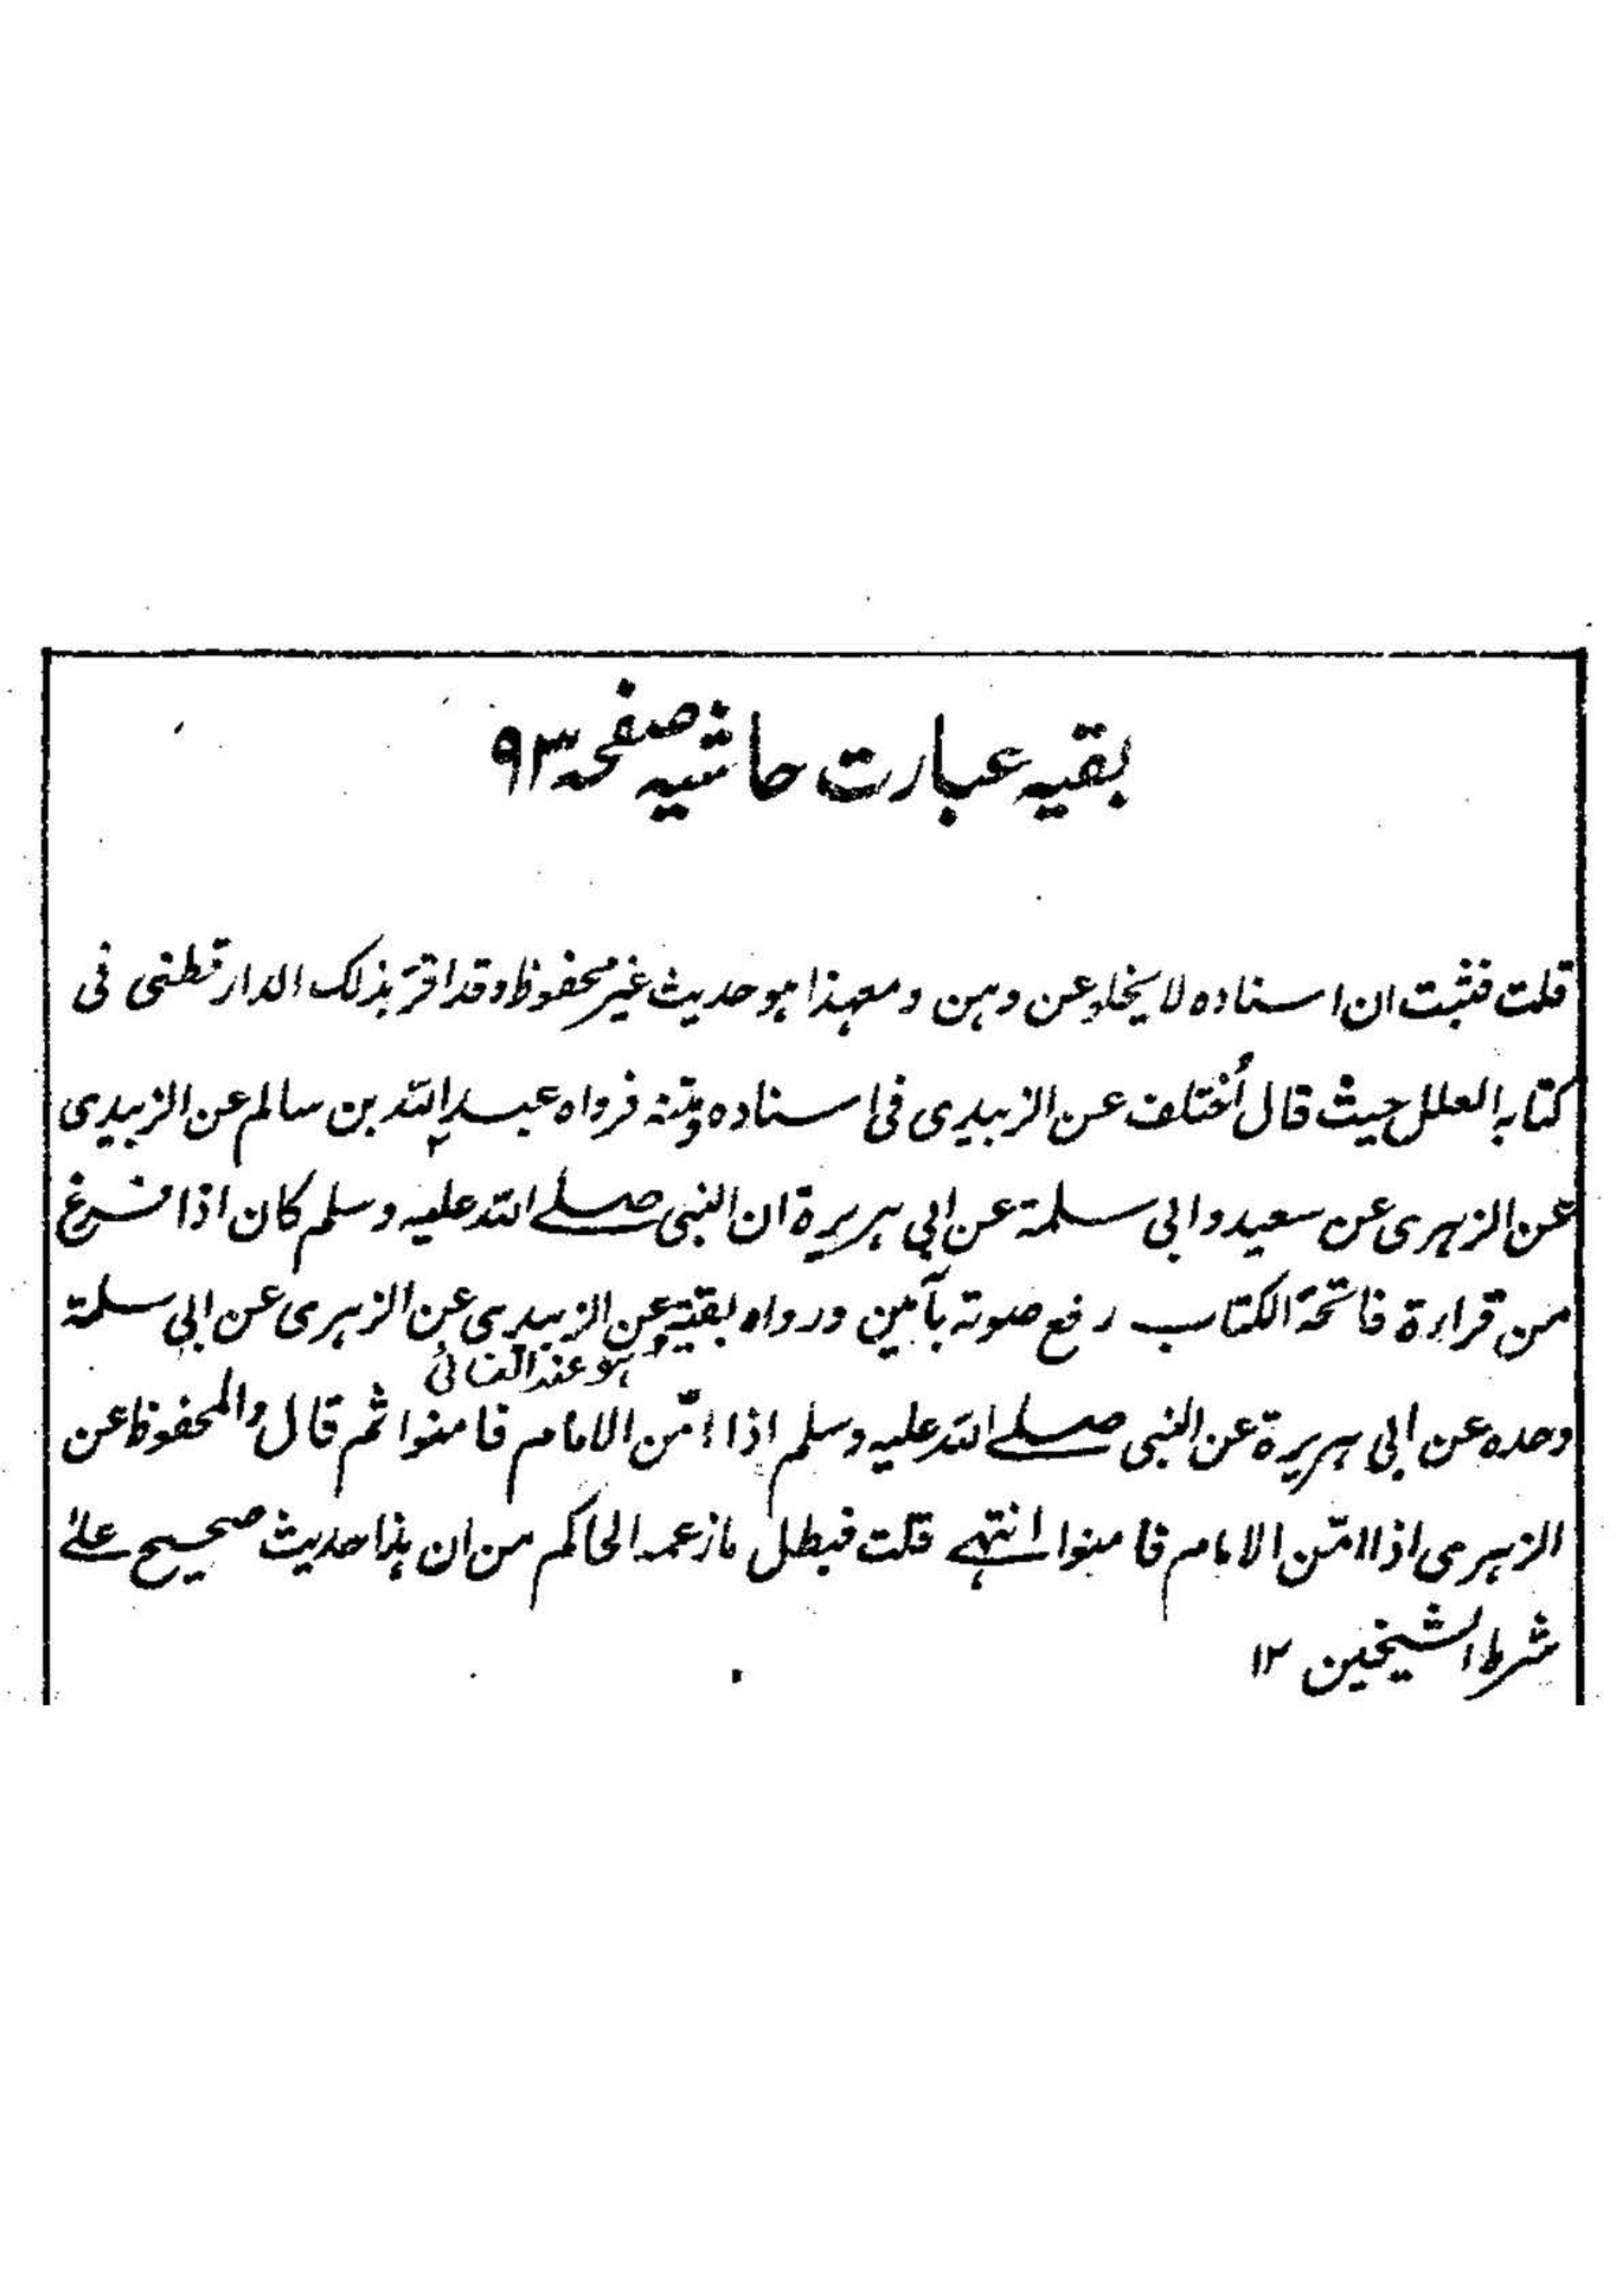 بقیہ عبارت حاشیہ صفحہ ۹۳
قلت فثبت ان اسناده لا يخلو عن وہن ومعہذا ہو حديث غير محفوظ وقد اقرّ بذلک الدار قطنی فی
کتابہ العلل حیث قال اُختلف عن الزبیدی فی اسناده ومتنہ فرواه عبد اللہ بن سالم عن الزبیدی
عن الزہری عن سعید وابی سلمة عن ابی ہریرة ان النبی صلے اللہ علیہ وسلم کان اذا فرغ
من قراءة فاتحة الکتاب رفع صوتہ بآمین ورواه بقیة عن الزبیدی عن الزہری عن ابی سلمة
وہو عند النسائی
وحده عن ابی ہریرة عن النبی صلے اللہ علیہ وسلم اذا امّن الامام فامنوا ثم قال والمحفوظ عن
الزہری اذا امّن الامام فامنوا انتہے قلت فبطل ما زعمہ الحاکم من ان ہذا حدیث صحیح علے
شرط الشیخین ۱۲